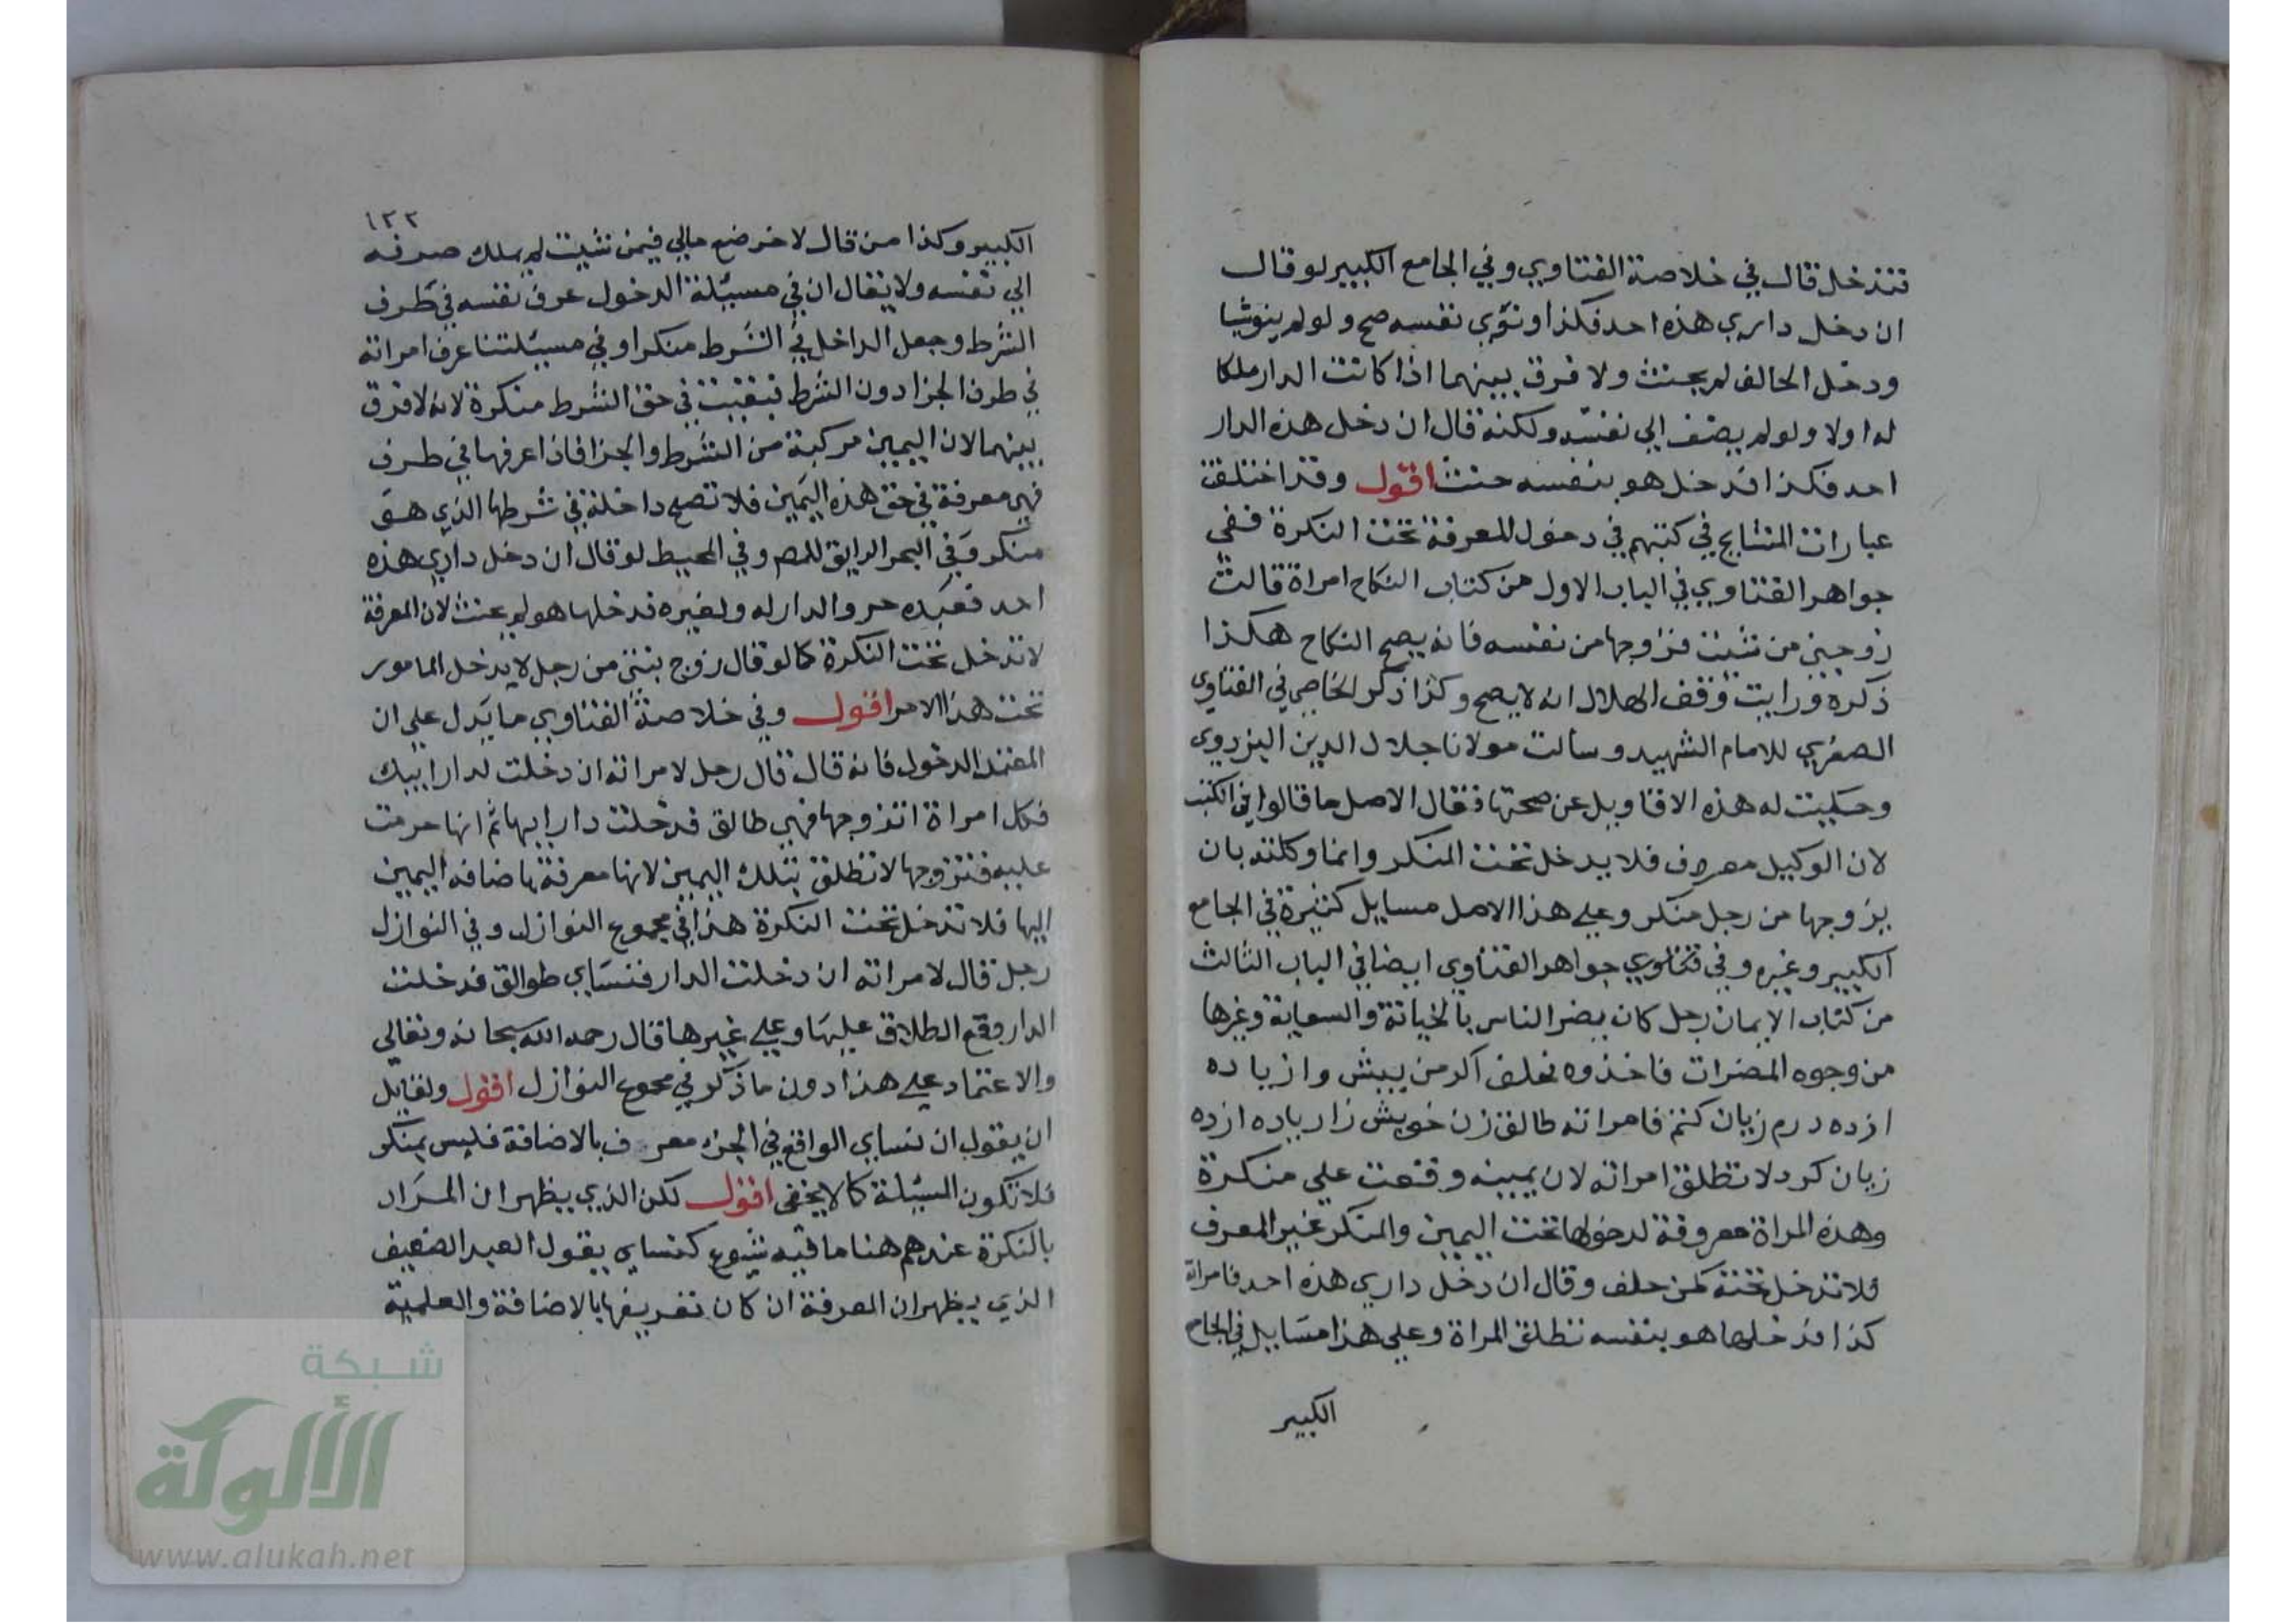 فتدخل قال في خلاصة الفتاوي وفي الجامع الكبير لو قال
ان دخل داري هذه احد فكذا ونوي نفسه صح ولو لم ينو شيا
ودخل الحالف لم يحنث ولا فرق بينهما اذا كانت الدار ملكا
له اولا ولو لم يضف الي نفسه ولكنه قال ان دخل هذه الدار
احد فكذا فدخل هو بنفسه حنث اقول وقد اختلفت
عبارات المشايخ في كتبهم في دخول المعرفة تحت النكرة ففي
جواهر الفتاوي في الباب الاول من كتاب النكاح امراة قالت
زوجني من شيت فزوجها من نفسه فانه يصح النكاح هكذا
ذكره ورايت وقف الهلال انه لا يصح وكذا ذكر الخاصي في الفتاوي
الصغري للامام الشهيد وسالت مولانا جلال الدين اليزدوي
وحكيت له هذه الاقاويل عن صحتها فقال الاصل ما قالوا في الكتب
لان الوكيل معروف فلا يدخل تحت المنكر وانما وكلته بان
يزوجها من رجل منكر وعلي هذا الاصل مسايل كثيرة في الجامع
الكبير وغيره وفي فتاوي جواهر الفتاوي ايضا في الباب الثالث
من كتاب الايمان رجل كان يضر الناس بالخيانة والسعاية وغيرها
من وجوه المضرات فاخذوه فحلف اكر من بيش واز ياده
ازده درم زيان كنم فامراته طالق زن خويش زار ياده ازده
زيان كرد لا تطلق امراته لان يمينه وقعت علي منكرة
وهذه المراة معروفة لدخولها تحت اليمين والمنكر غير المعرف
فلا تدخل تحته كمن حلف وقال ان دخل داري هذه احد فامراته
كذا فدخلها هو بنفسه تطلق المراة وعلي هذا مسايل في الجامع
الكبير
١٣٢
الكبير وكذا من قال لاخر ضع مالي فيمن شيت لم يملك صرفه
الي نفسه ولا يقال ان في مسيلة الدخول عرف نفسه في طرف
الشرط وجعل الداخل في الشرط منكرا وفي مسيلتنا عرف امراته
في طرف الجزا دون الشرط فبقيت في حق الشرط منكرة لانه لا فرق
بينهما لان اليمين مركبة من الشرط والجزا فاذا عرفها في طرف
فهي معرفة في حق هذه اليمين فلا تصح داخلة في شرطها الذي هو
منكر وفي البحر الرايق للمص وفي المحيط لو قال ان دخل داري هذه
احد فعبده حر والدار له ولغيره فدخلها هو لم يحنث لان المعرفة
لا تدخل تحت النكرة كما لو قال زوج بنتي من رجل لا يدخل المامور
تحت هذا الامر اقول وفي خلاصة الفتاوي ما يدل علي ان
المعتمد الدخول فانه قال قال رجل لامراته ان دخلت لدار ابيك
فكل امراة اتزوجها فهي طالق فدخلت دار ابيها ثم انها حرمت
عليه فتزوجها لا تطلق بتلك اليمين لانها معرفة باضافه اليمين
اليها فلا تدخل تحت النكرة هذا في مجموع النوازل وفي النوازل
رجل قال لامراته ان دخلت الدار فنساي طوالق فدخلت
الدار وقع الطلاق عليها وعلي غيرها قال رحمه الله سبحانه وتعالي
والاعتماد علي هذا دون ما ذكر في مجموع النوازل اقول ولقايل
ان يقول ان نساي الواقع في الجزء معرف بالاضافة فليس بمنكر
فلا تكون المسيلة كما لا يخفي اقول لكن الذي يظهر ان المراد
بالنكرة عندهم هنا ما فيه شيوع كنساي يقول العبد الضعيف
الذي يظهر ان المعرفة ان كان تعريفها بالاضافة والعلمية
شبكة
الألوكة
www.alukah.net